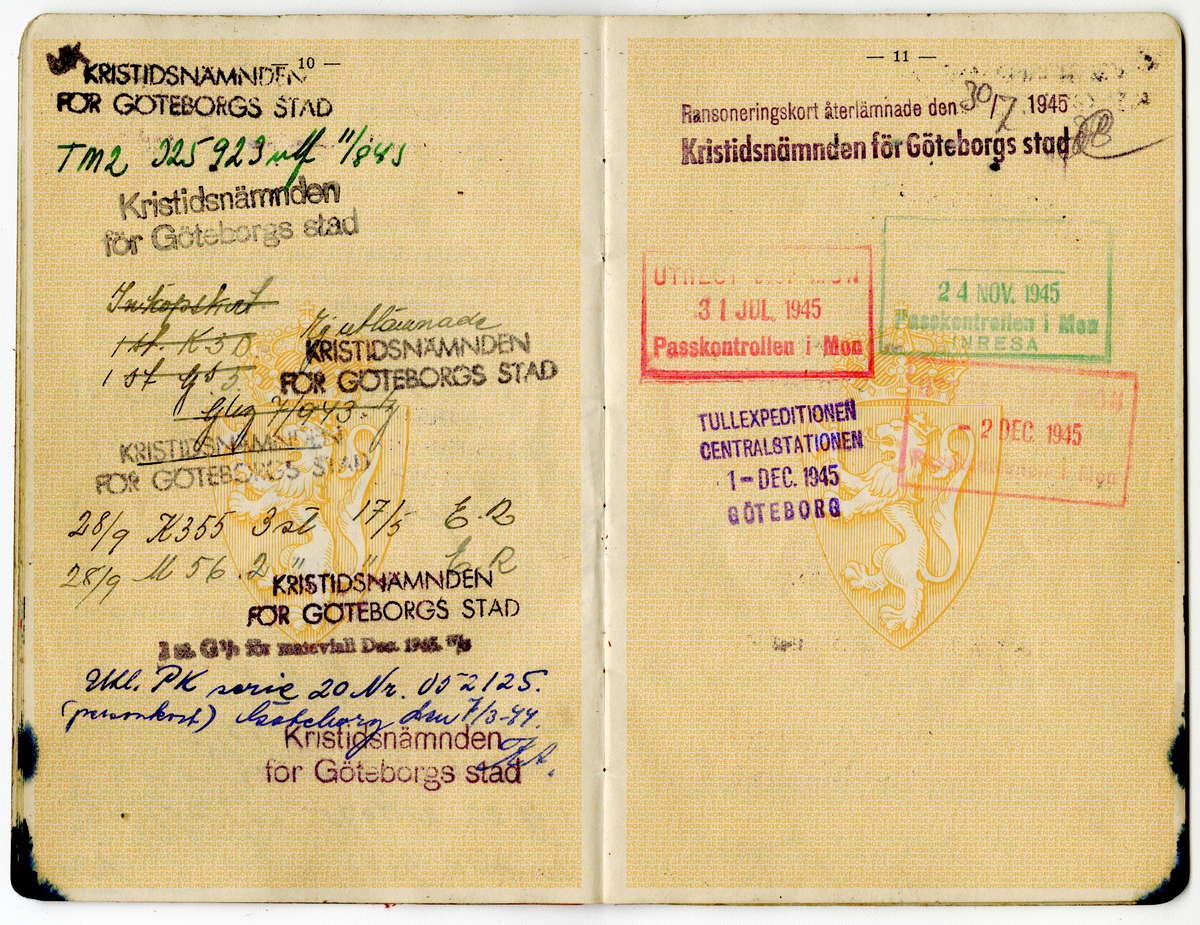 — 10 —
KRISTIDSNÄMNDEN
FÖR GÖTEBORGS STAD
TM2 325923 11/8 43
Kristidsnämnden
för Göteborgs stad
Inköpskort
1 st. K 3 D
1 st G 5 3
Ej utlämnade
KRISTIDSNÄMNDEN
FÖR GÖTEBORGS STAD
Gbg 7/9 43.
KRISTIDSNÄMNDEN
FÖR GÖTEBORGS STAD
28/9 K355 3 st 17/5 E. R
28/9 M 56. 2 " " E. R
KRISTIDSNÄMNDEN
FÖR GÖTEBORGS STAD
1 st. G för Dec. 1945.
Utl. PK serie 20 Nr. 052125.
(personkort) Göteborg den 7/3-44.
Kristidsnämnden
för Göteborgs stad
— 11 —
Ransoneringskort återlämnade den 30/7 1945
Kristidsnämnden för Göteborgs stad
UTREST
31 JUL. 1945
Passkontrollen i Mon
24 NOV. 1945
Passkontrollen i Mon
INRESA
- 2 DEC. 1945
TULLEXPEDITIONEN
CENTRALSTATIONEN
1 - DEC. 1945
GÖTEBORG